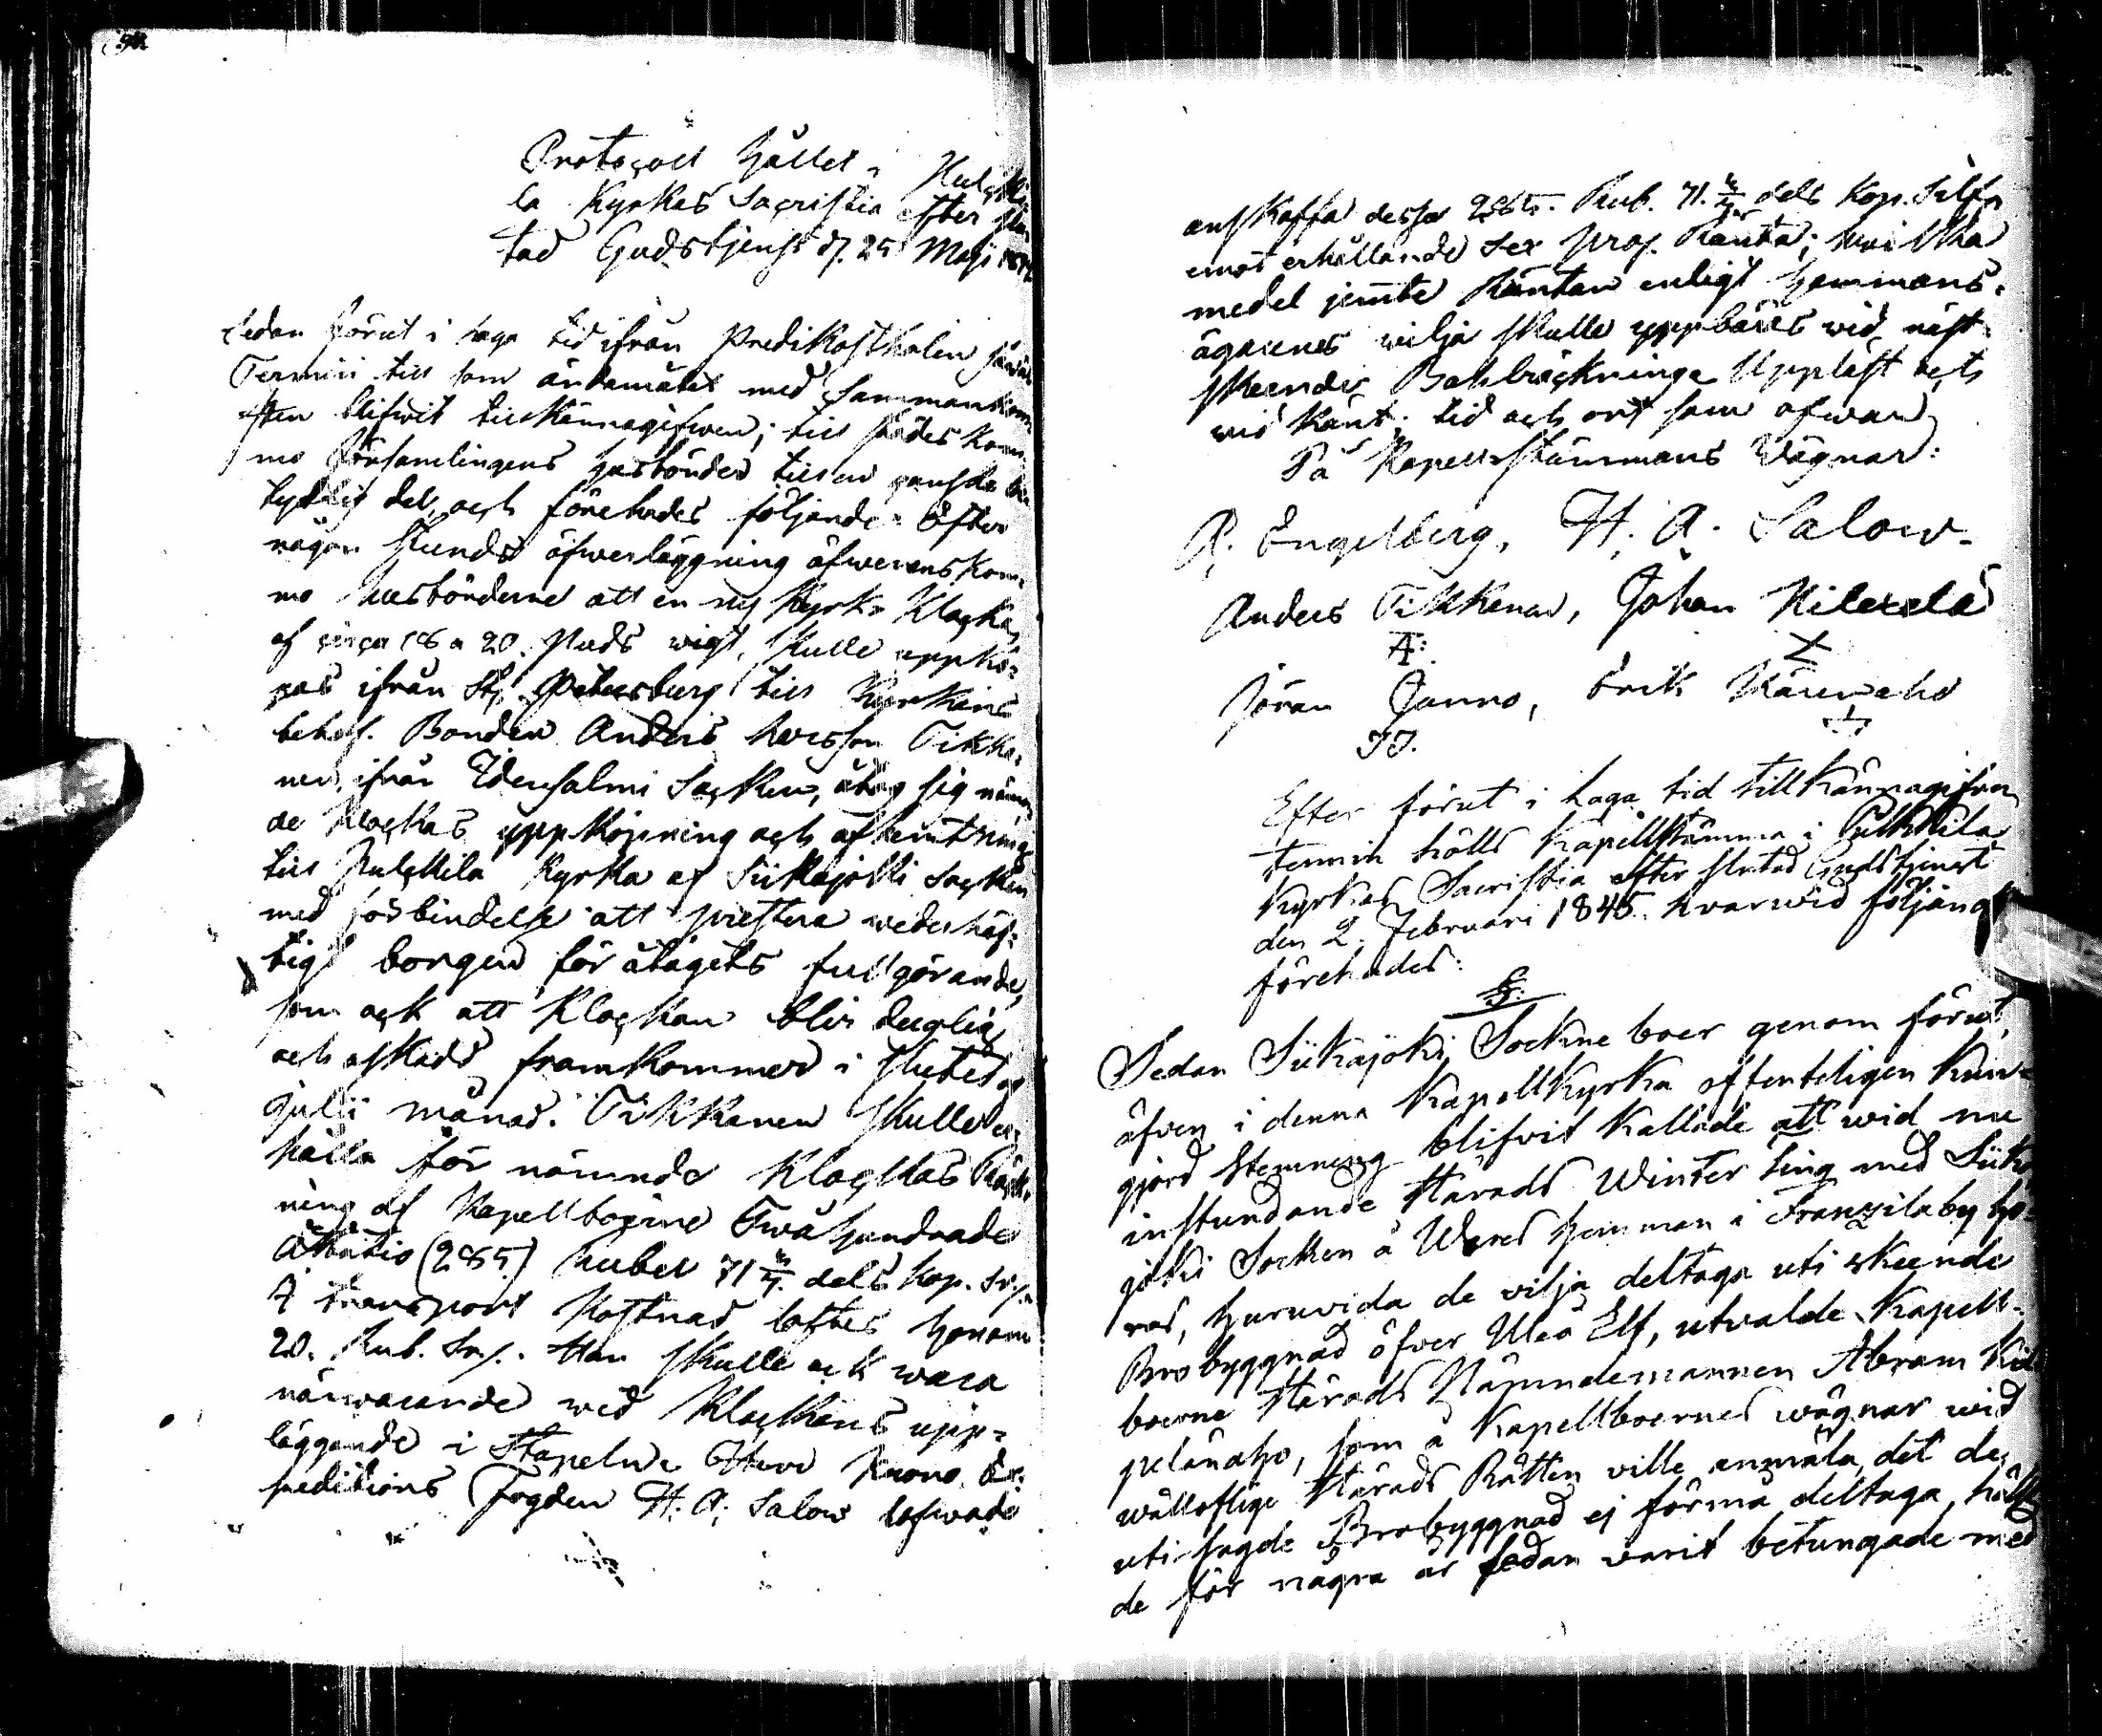 Protocoll hållet i Pulcki-
la Kyrkas Sacristia efter slu-
tad Gudstjenst d. 25 Maji 1844
Sedan förut i laga tid ifrån Predikostholen
Termin till som ändamålet med Sammankom-
sten blifwit tillkännagifwen; till städes kom-
mo Församlingens husbönder till en ganska be-
tydlig del, och förehades följande: Efter
någon stunds öfwerläggning öfwerenskom-
mo husbönderne att en ny Kyrko Klocka
af circa 18 a 20. Puds wigt, skulle uppkö-
pas ifrån St. Petersburg till Kyrkans
behof. Bonden Anders Larsson Tikka-
nen, ifrån Idensalmi Socken, åtog sig nämn-
de Klockas uppköpning och afhemtning
till Pulckila Kyrka af Siikajokki Socken
med förbindelse att prestera wederhäf-
tig borgen för åtagets fullgörande,
som ock att Klockan blir duglig
och oskadd framkommer i slutet af
Julii månad. Tikkanen skulle er-
hålla för nämnde Klockas
ning af Kapellboerne Twåhundrade
Åttatio (285) Rubel 71 3/7. dels kop. Sr.
I transport kostnad loftes honom
20. Rub. Sr. Han skulle ock wara
närwarande wid Klockans upp-
läggande i Stapeln. Herr Krono Ex-
peditions Fogden H. A. Salow lofwade
anskaffa dessa 285. Rub. 71. 3/7 dels Kop. Silfr
emot erhållande sex proc. Ränta; hwilka
medel jemte Räntan enligt hemmans-
ägarenes wilja skulle uppbäras wid näst
skeende Bohlräckninge Uppläst och
wid känt; tid och ort som ofwan
På Kapellstämmans Wägnar:
P. Engelberg, H. A. Salow.
Anders Tikkanen, Johan Hilexelä
A: X
Jöran Junno, Erik Käunaho
JJ.
Efter förut i laga tid tillkännagifven
termin hölls Kapellstämma i Pulkkila
Kyrkas Sacristia efter slutad Gudstjenst
den 2. Februari 1845. hvarwid följande
förehades:
§.
Sedan Siikajoki Sockne boer genom förut,
äfven i denna Kapellkyrka offenteligen kun-
gjord stemning blifvit kallade att wid nu
instundande Härads Winter ting med Siika-
joki Socken å Wares hemman i Franzila by hö-
ras, huruvida de vilja deltaga uti skeende
Brobyggnad öfver Uleå Elf, utvalde Kapell-
boerne Härads Nämndemannen Abram Kil-
pelänaho, som å Kapellboernes wägnar wid
wälloflige Härads Rätten ville anmäla, det de
uti sagde Brobyggnad ej förmå deltaga, hälst
de för några år sedan varit betungade med